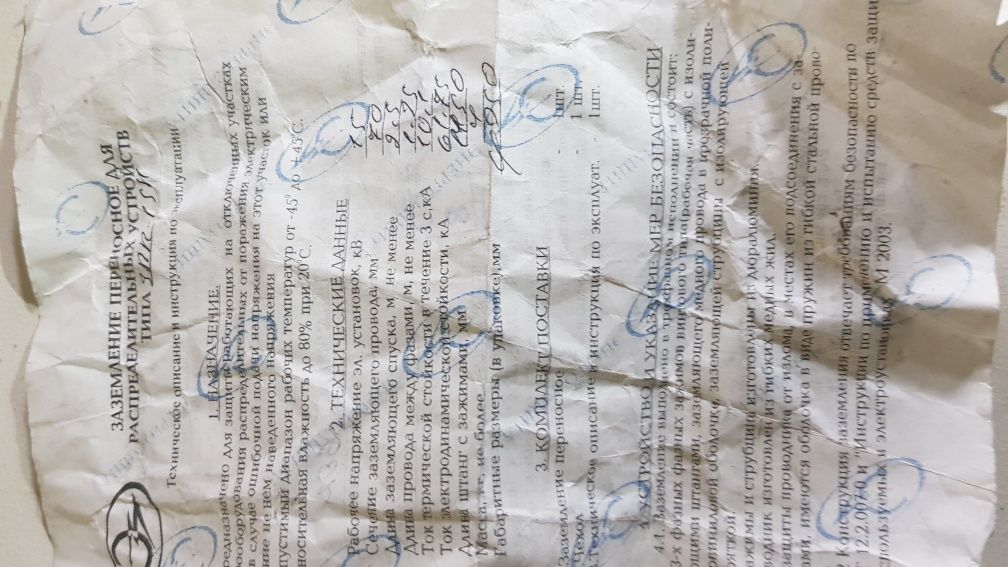 ЗАЗЕМЛЕНИЕ ПЕРЕНОСНОЕ ДЛЯ
РАСПРЕДЕЛИТЕЛЬНЫХ УСТРОЙСТВ
ТИПА
Техническое описание и инструкция по эксплуатации
1. НАЗНАЧЕНИЕ
редназначено для защиты работающих на отключенных участках
рооборудования распределительных от поражения электрическим
в случае ошибочной подачи напряжения на этот участок или
ние не нем наведенного напряжения
пустимый диапазон рабочих температур от -45° до + 45°С.
носительная влажность до 80% при 20°С.
2. ТЕХНИЧЕСКИЕ ДАННЫЕ
Рабочее напряжение эл. установок, кВ 15
Сечение заземляющего провода, мм²
Длина заземляющего спуска, м, не менее
Длина провода между фазами м, не менее
Ток термической стойкости в течение 3 с,кА
Ток электродинамической стойкости, кА
Длина штанг с зажимами, мм
Масса, кг, не более
Габаритные размеры (в упаковке),мм
3. КОМПЛЕКТ ПОСТАВКИ
Заземление переносное - 1шт.
Чехол - 1 шт.
Техническое описание и инструкция по эксплуат. - 1шт.
4.УСТРОЙСТВО И УКАЗАНИЕ МЕР БЕЗОПАСНОСТИ
4.1. Заземление выполнено в трехфазном исполнении и состоит:
3-х фазных зажимов винтового типа(рабочая часть) с изоли-
ющими штангами, заземляющего медного провода в прозрачной поли-
лорвиниловой оболочке, заземляющей струбцины с изолирующей
ручкой.
ажимы и струбцина изготовлены из дюралюминия
водник изготовлен из гибких медных жил.
защиты проводника от излома, в местах его подсоединения с за-
ами, имеются оболочка в виде пружин из гибкой стальной прово-
2 Конструкция заземления отвечает требованиям безопасности по
12.2.007.0 и "Инструкции по применению и испытанию средств защи
спользуемых в электроустановках", М 2003.